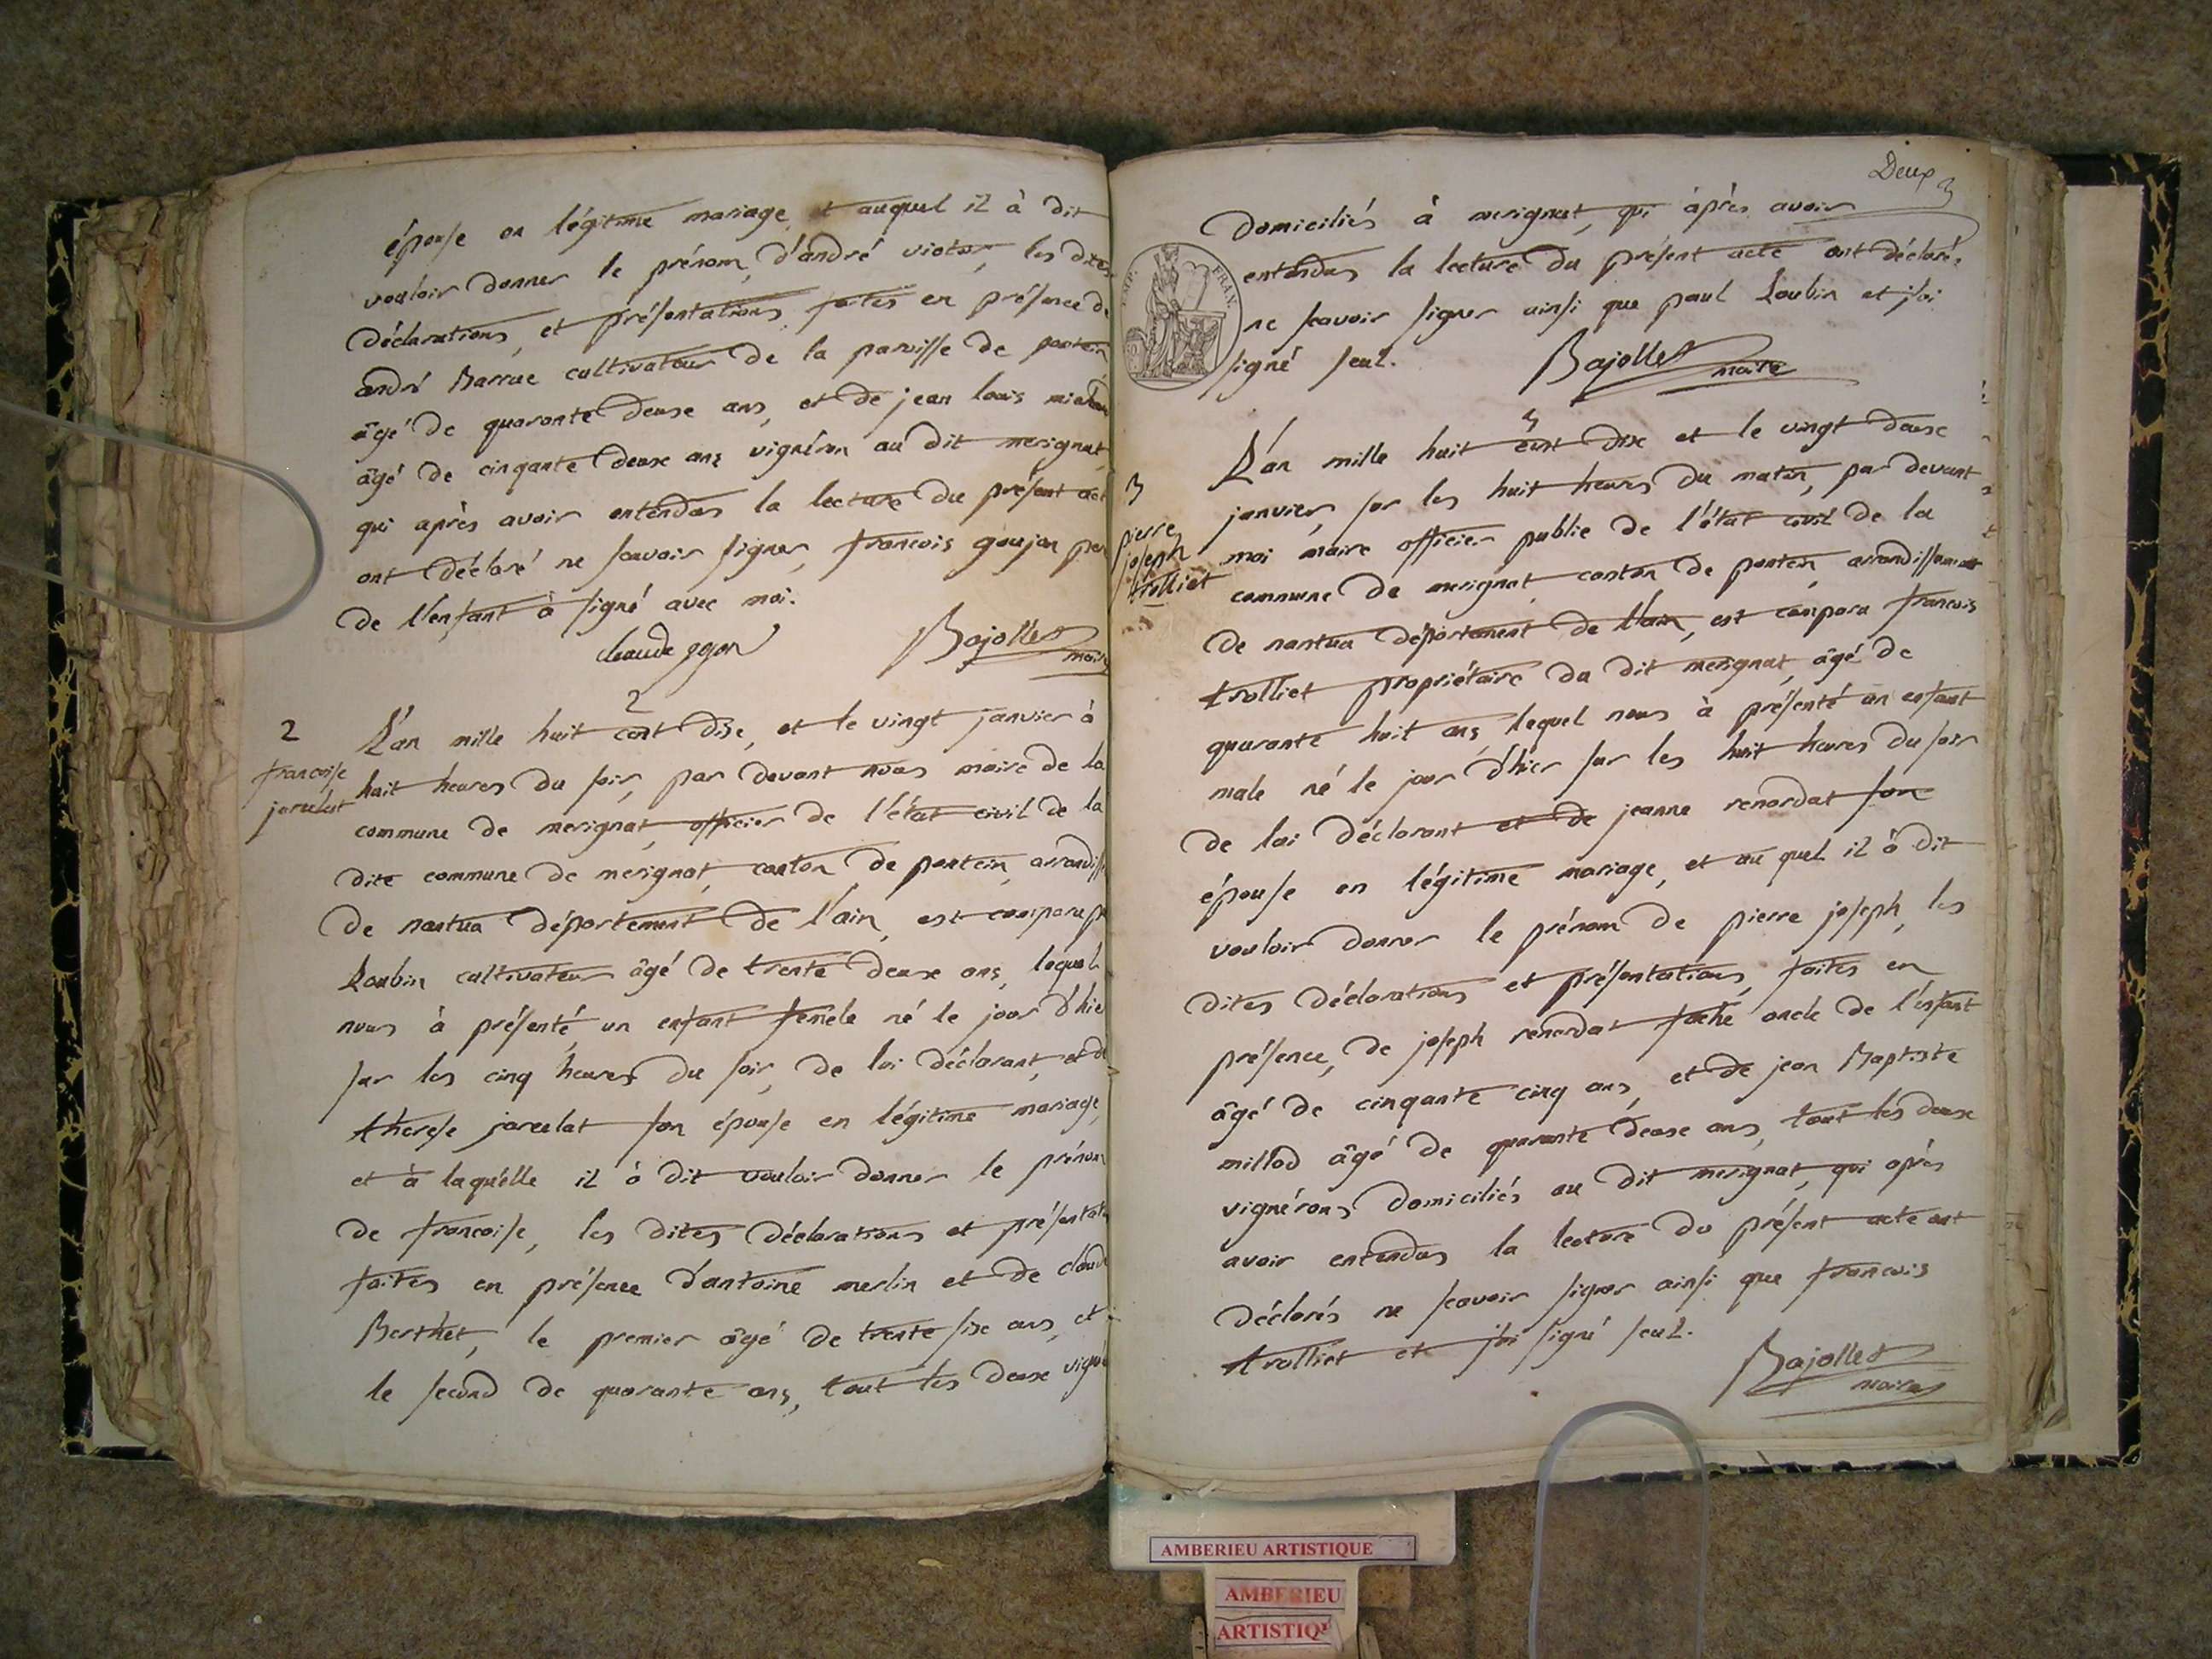 épouse en légitime mariage, et auquel il à dit
vouloir donner le prénom, d'andré victor, les dites
déclarations, et présentations faites en présence de
andré Barrue cultivateur de la paroisse de poncin
âgé de quarante deuxe ans, et de jean louis
âgé de cinqante deuxe ans vignéron au dit merignat
qui après avoir entendus la lecture du présent act
ont déclaré ne scavoir signer, francois goujon per
de l'enfant à signé avec moi.
claude Bajollet
maire
2
2 L'an mille huit cent dixe, et le vingt janvier à
francoise
jarcelat
huit heures du soir, par devant nous maire de la
commune de merignat, officier de l'état civil de la
dite commune de merignat, canton de poncin, arrondiss
de nantua département de l'ain, est comparu p
Loubin cultivateur âgé de trente deuxe ans, lequel
nous à présenté, un enfant femele né le jour d'hie
sur les cinq heures du soir, de lui déclarant, et de
therese jarcelat son épouse en légitime mariage,
et à laquélle il à dit vouloir donner le prénom
de francoise, les dites déclarations et présentati
faites en présence d'antoine merlin et de claud
Berthet, le premier âgé de trente sixe ans, et
le second de quarante ans, tout les deuxe vigné
Deux
domiciliés à merignat, qui après avoir
EMP. FRAN.
entendus la lecture du présent acte ont déclarés
ne scavoir signer ainsi que paul Loubin et j'ai
signé seul. Bajollet
maire
3
L'an mille huit cent dixe et le vingt deuxe
3
pierre
joseph
trolliet
janvier, sur les huit heures du matin, par devant
moi maire officier public de l'état civil de la
commune de merignat canton de poncin, arrondissement
de nantua département de l'ain, est comparu francois
trolliet propriétaire du dit merignat, âgé de
quarante huit ans, lequel nous à présenté un enfant
male né le jour d'hier sur les huit heures du soir
de lui déclarant et de jeanne renardat son
épouse en légitime mariage, et au quel il à dit
vouloir donner le prénom de pierre joseph, les
dites déclarations et présentations, faites en
présence, de joseph renardat oncle de l'enfant
âgé de cinqante cinq ans, et de jean Baptiste
millod âgé de quarante deuxe ans, tout les deuxe
vignérons domiciliés au dit merignat, qui après
avoir entendus la lecture du présent acte ont
déclarés ne scavoir signer ainsi que francois
trolliet et j'ai signé seul.
Bajollet
maire
AMBERIEU ARTISTIQUE
AMBERIEU
ARTISTIQU